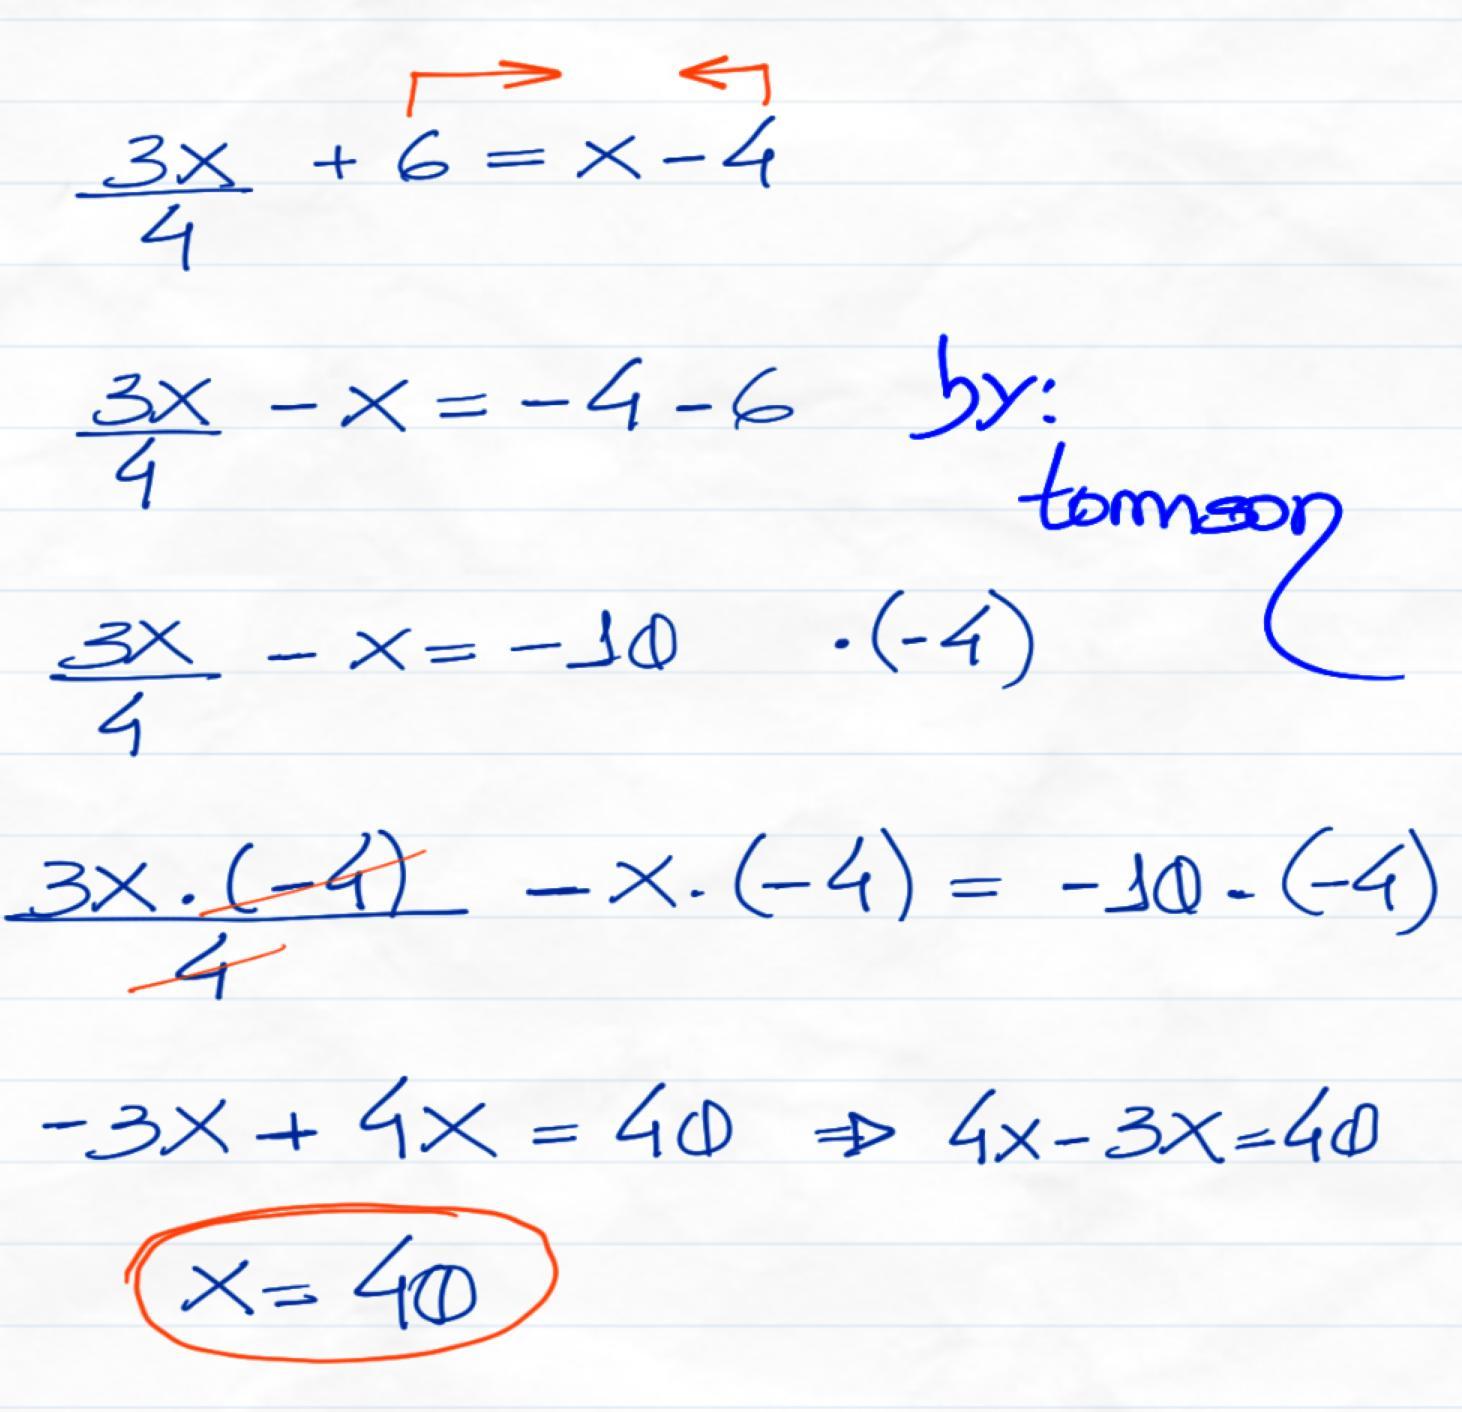 3x/4 + 6 = x - 4
3x/4 - x = -4 - 6
by:
tomson
3x/4 - x = -10 · (-4)
3x · (-4)/4 - x · (-4) = -10 · (-4)
-3x + 4x = 40 ⇒ 4x - 3x = 40
x = 40